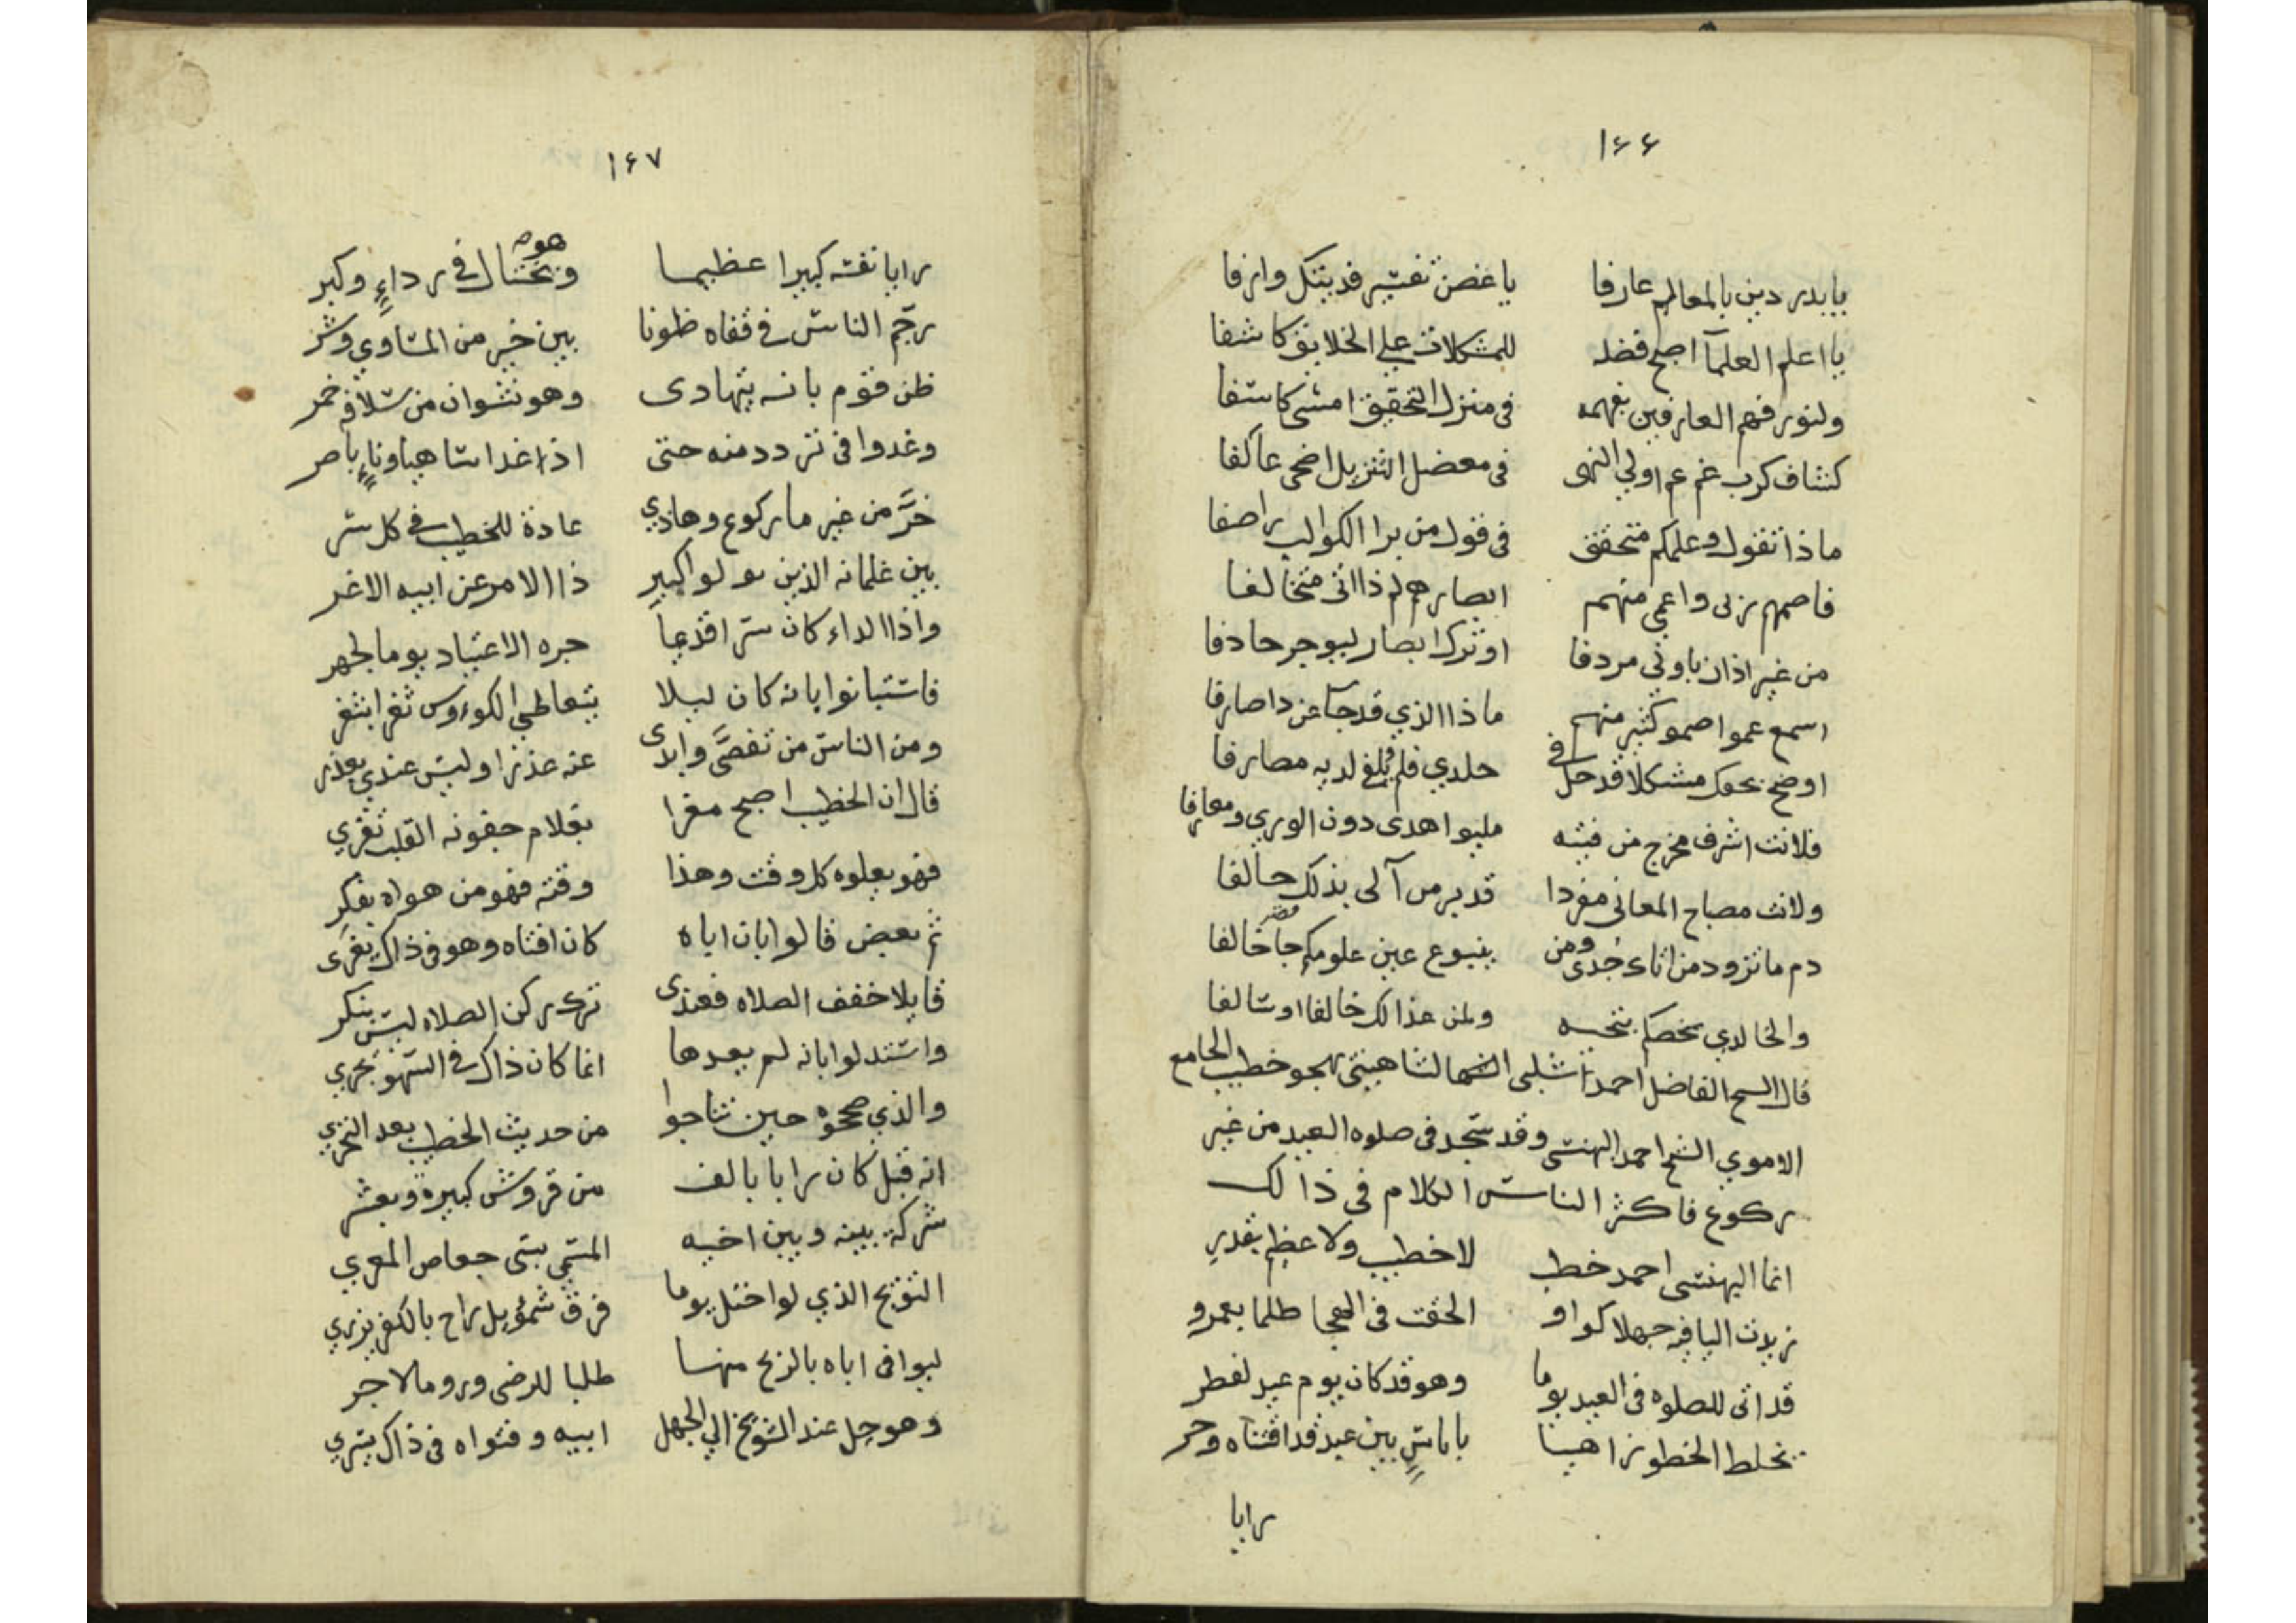 ١٤٦
يا بدر دين بالمعالم عارفا يا غصن نفتير فديتك وارفا
يا اعلم العلمآ اصبح فضله للمشكلات علي الخلايق كاشفا
ولنور فهم العارفين بفهمه في منزل التحقيق امسى كاسفا
كشاف كرب غم عم اولي النهى في معضل التنزيل اضحى عاكفا
ماذا تقول وعلمكم متحقق في قول من برا الكواكب راصفا
فاصمهم ربى واعمى منهم ابصارهم لم ذا اتى متخالفا
من غير اذان ياوني مردفا او ترك ابصار ليوجر حادفا
اسمع عموا صموا كثير منهم ماذا الذي قد جآ عن دا صارفا
اوضح بحقك مشكلا قد حل في خلدي فلم يلغ لديه مصارفا
فلانت اشرف مخرج من فيئه مليوا هدى دون الوري ومعارفا
ولانت مصباح المعاني مفردا قدير من آلى بذلك حالفا
دم ما تزود من اتاك جدى ومن ينبوع عين علومكم جا خالفا
والخالدي يخصكم بتحيه ولمن غذا لك خالفا او سالفا
قال الشيخ الفاضل احمد شلبي الشاهيني يهجو خطيب الجامع
الاموي الشيخ احمد البهنسى وقد سجد في صلوه العيد من غير
ركوع فاكثر الناس الكلام في ذالك
انما البهنسى احمد خطب لا خطيب ولا عظيم بقدر
زيدت اليا فيه جهلا كواو الحقت في الهجا ظلما بعمرو
قد اتى للصلوه في العيد يوما وهو قد كان يوم عيد لفطر
يخلط الخطو زاهيا بلباسٍ بين عبد قد اقتناه وحر
رايا
١٤٧
رايا نفسه كبيرا عظيما وهو يختال في رداءٍ وكبر
رجّم الناس في قفاه ظنونا بين خير من المساوي وشر
ظن قوم بانه يتهادى وهو نشوان من سلافة خمر
وغدوا في تردد منه حتى اذ غدا ساهيا وناءٍ بامر
خرَّ من غير ما ركوع وهاذي عادة للخطيب في كل سر
بين غلمانه الذين تولوا كبير ذا الامر عن ابيه الاغر
واذا الداء كان سرا قديما جره الاعتياد يوما لجهر
فاستبانوا بانه كان ليلا يتعاطى الكوءوس ثغرا بثغر
ومن الناس من تفصَّى وابدى عنه عذرا وليس عندي بعذر
قال ان الخطيب اصبح مغرا بغلام جفونه القلب تغري
فهو يعلوه كل وقت وهذا وقته فهو من هواه بفكر
ثم بعض قالوا بان اباه كان افتاه وهو في ذاك يغرى
قايلا خفف الصلاه فعندى ترك ركن الصلاه ليس بنكر
واستدلوا بانه لم يعدها انما كان ذاك في السهو يجري
والذي صححوه حين تناجوا من حديث الخطيب بعد التحري
انه قبل كان رابا بالف من قروش كبيرة وبعشر
شركة بينه وبين اخيه المسمى بستى جعاص المعري
التويج الذي لو اختل يوما فرق شموئيل راح بالكفر يزري
ليوافى اباه بالربح منها طلبا للرضى وروما لاجر
وهو حل عند الشويخ الي الجهل ابيه وفتواه في ذاك يسري